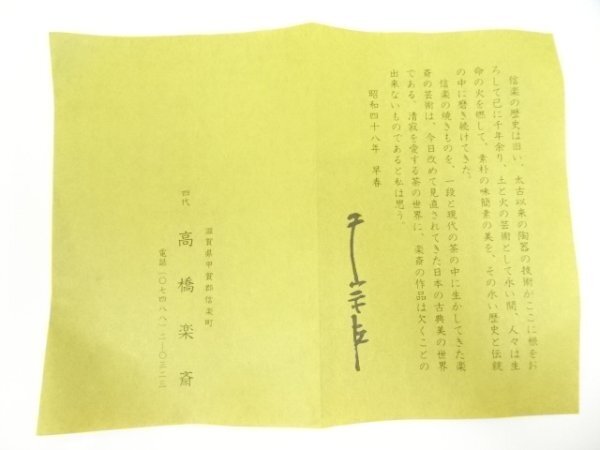 信楽の歴史は旧い、太古以来の陶器の技術がここに根をお
ろして已に千年余り、土と火の芸術として永い間、人々は生
命の火を燃して、素朴の味簡素の美を、その永い歴史と伝統
の中に磨き続けてきた。
信楽の焼きものを、一段と現代の茶の中に生かしてきた楽
斎の芸術は、今日改めて見直されてきた日本の古典美の世界
である。清寂を愛する茶の世界に、楽斎の作品は欠くことの
出来ないものであると私は思う。
昭和四十八年 早春
滋賀県甲賀郡信楽町
四代 高橋楽斎
電話（〇七四八八）二―〇三二三